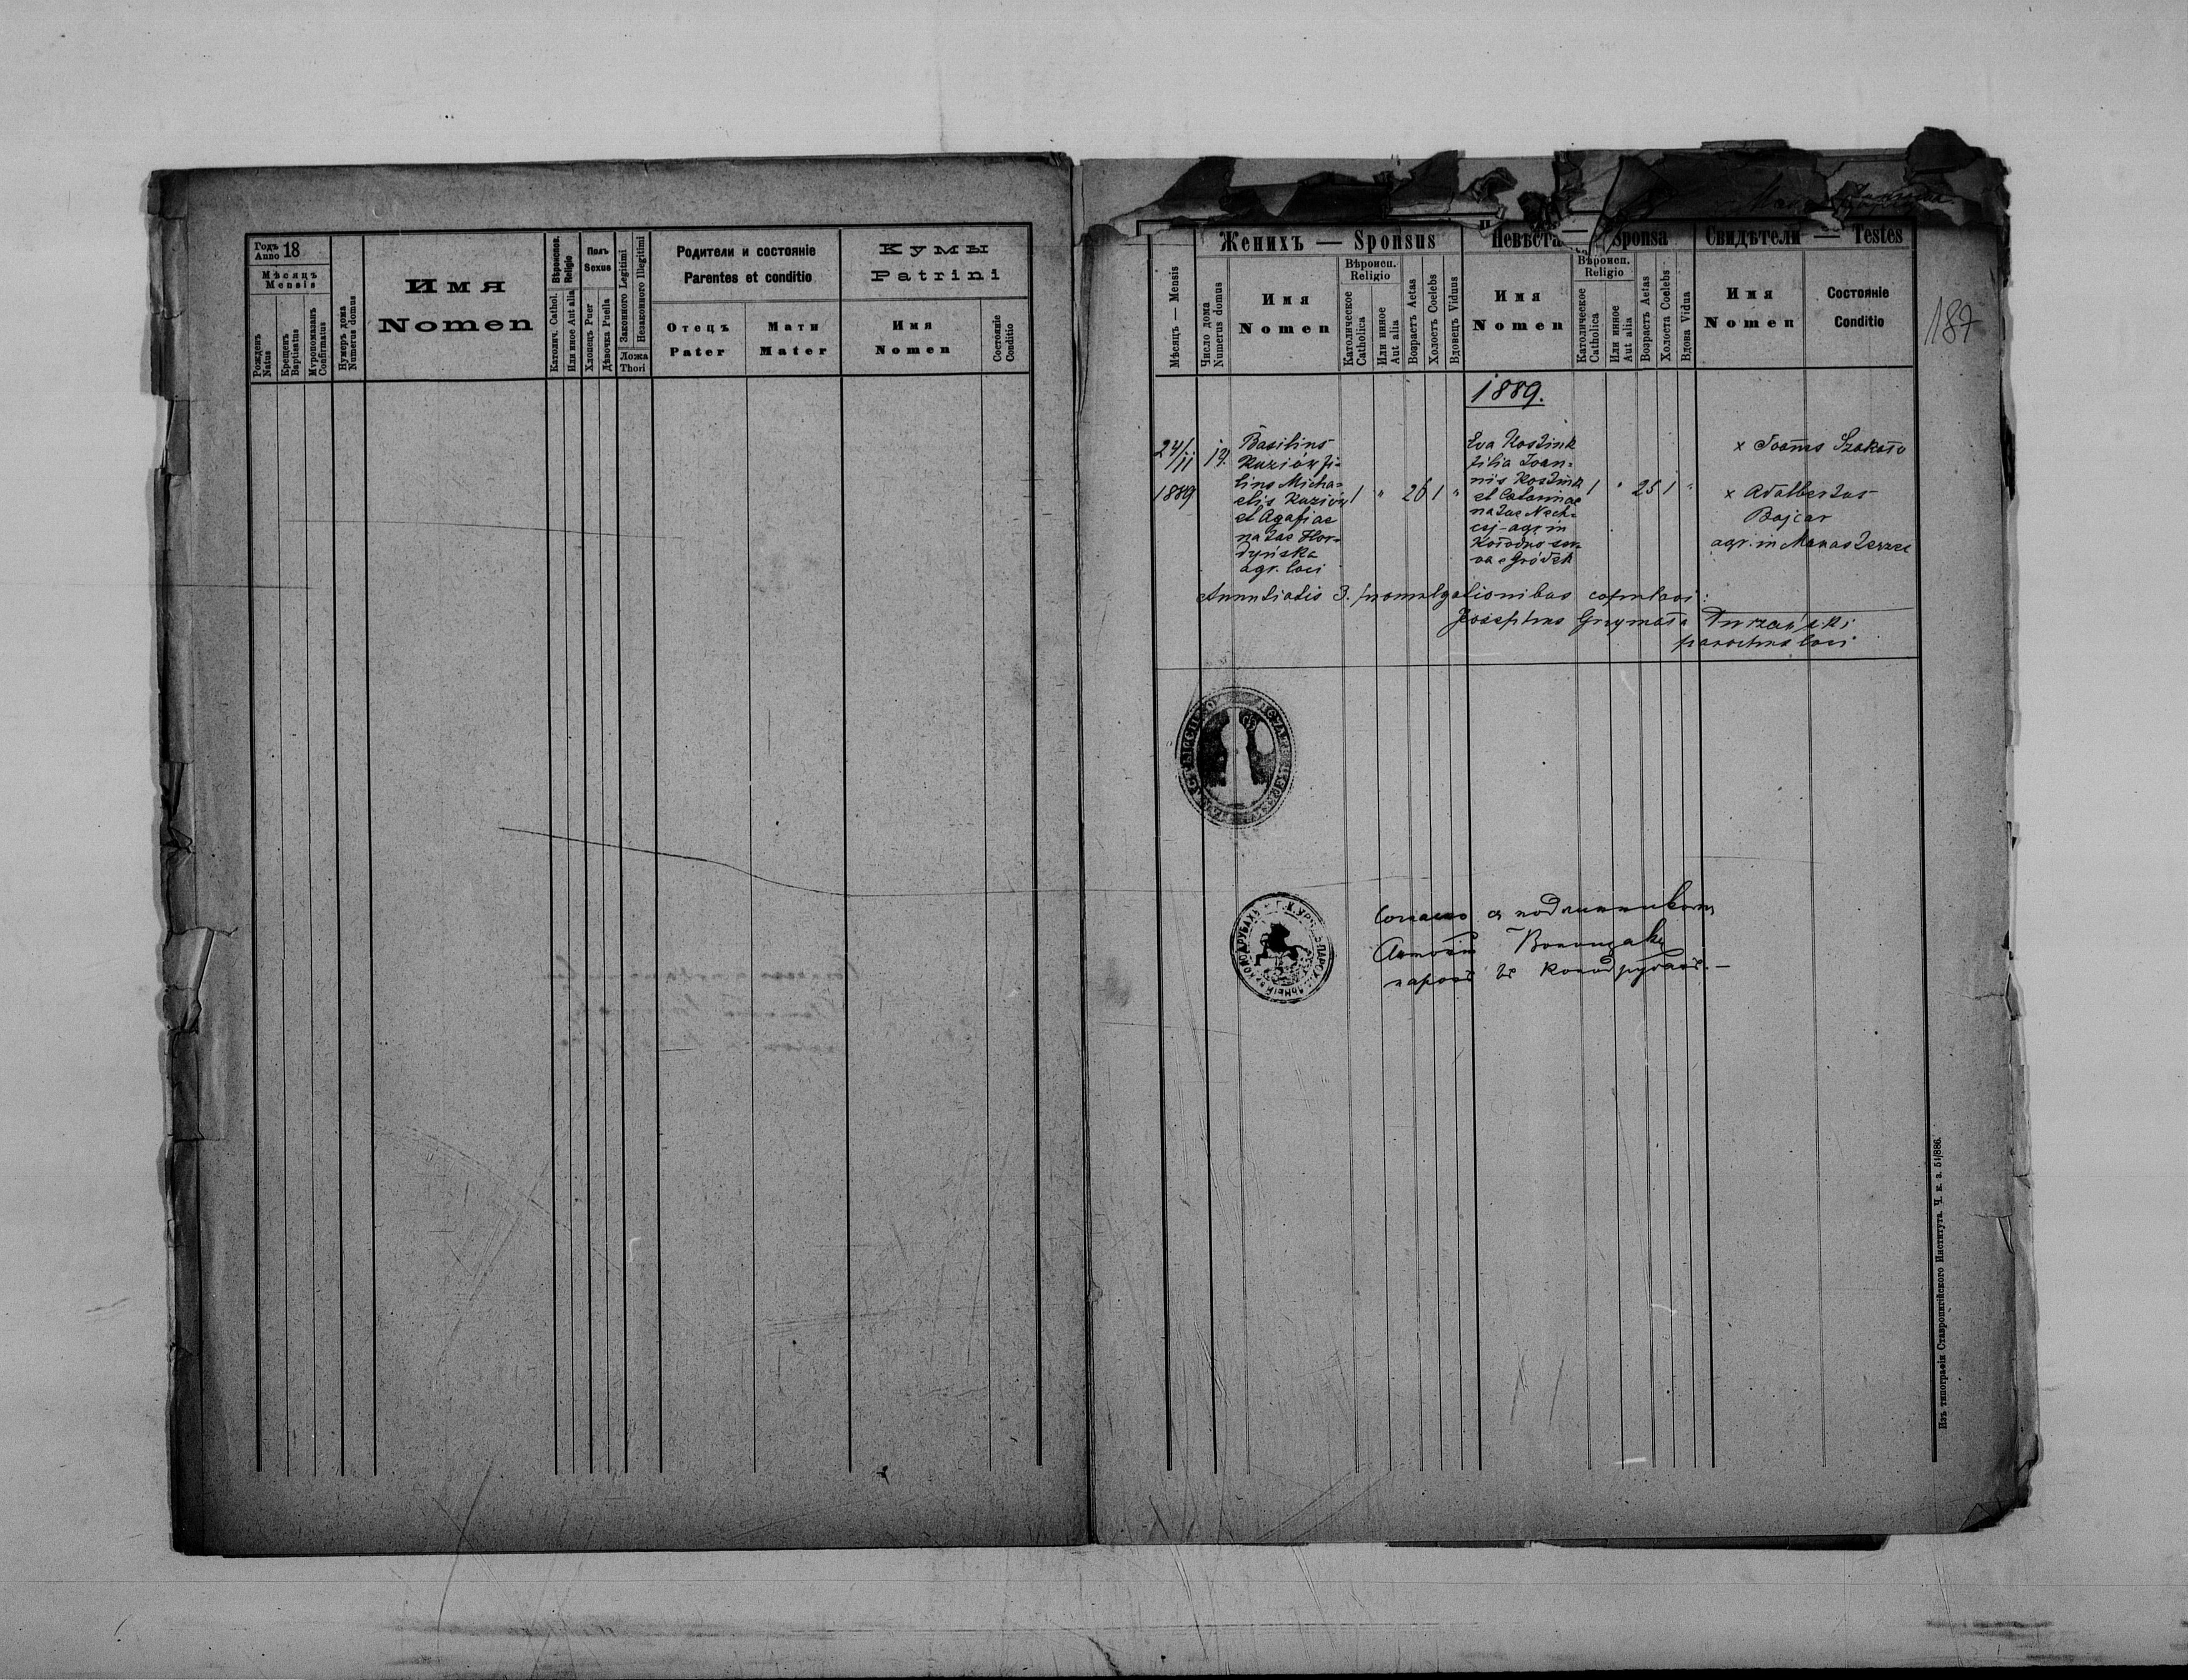 Годъ 18
Anno
Мѣсяцъ
Mensis
Рожденъ
Natus
Крещенъ
Baptisatus
Мѵропомазанъ
Confirmatus
Нумеръ дома
Numerus domus
Имя
Nomen
Вѣроиспов.
Religio
Католич. Cathol.
Или иное Aut alia
Полъ
Sexus
Хлопецъ Puer
Дѣвочка Puella
Законного Legitimi
Незаконного Illegitimi
Ложа
Thori
Родители и состояніе
Parentes et conditio
Отецъ
Pater
Мати
Mater
Кумы
Patrini
Имя
Nomen
Состояніе
Conditio
Женихъ — Sponsus
Невѣста — Sponsa
Свидѣтели — Testes
Мѣсяцъ — Mensis
Число дома
Numerus domus
Имя
Nomen
Вѣроисп.
Religio
Католическое
Catholica
Или иное
Aut alia
Возрастъ Aetas
Холостъ Coelebs
Вдовецъ Viduus
Имя
Nomen
Вѣроисп.
Religio
Католическое
Catholica
Или иное
Aut alia
Возрастъ Aetas
Холоста Coelebs
Вдова Vidua
Имя
Nomen
Состояніе
Conditio
187
1889.
24/II
1889
Basilius
Kuziów fi-
lius Micha-
elis Kuziów
et Agafiae
natae Hor-
dyńska
agr. loci
1 " 26 1 "
Eva Kostiuk
filia Joan-
nis Kostiuk
et Catarinae
natae
agr. in
1 " 25 1 "
x Joannes
x Adalbertus
Bojcar
agr. in Monasterzec
Annuntiatis 3. promulgationibus copulavi:
Josephus Grzymała Turzański
parochus loci
Согласно съ подлинникомъ
Антоній
парохъ въ Колодрубахъ. —
Изъ типографіи Ставропигійского Института. Ч. к. з. 51/886.